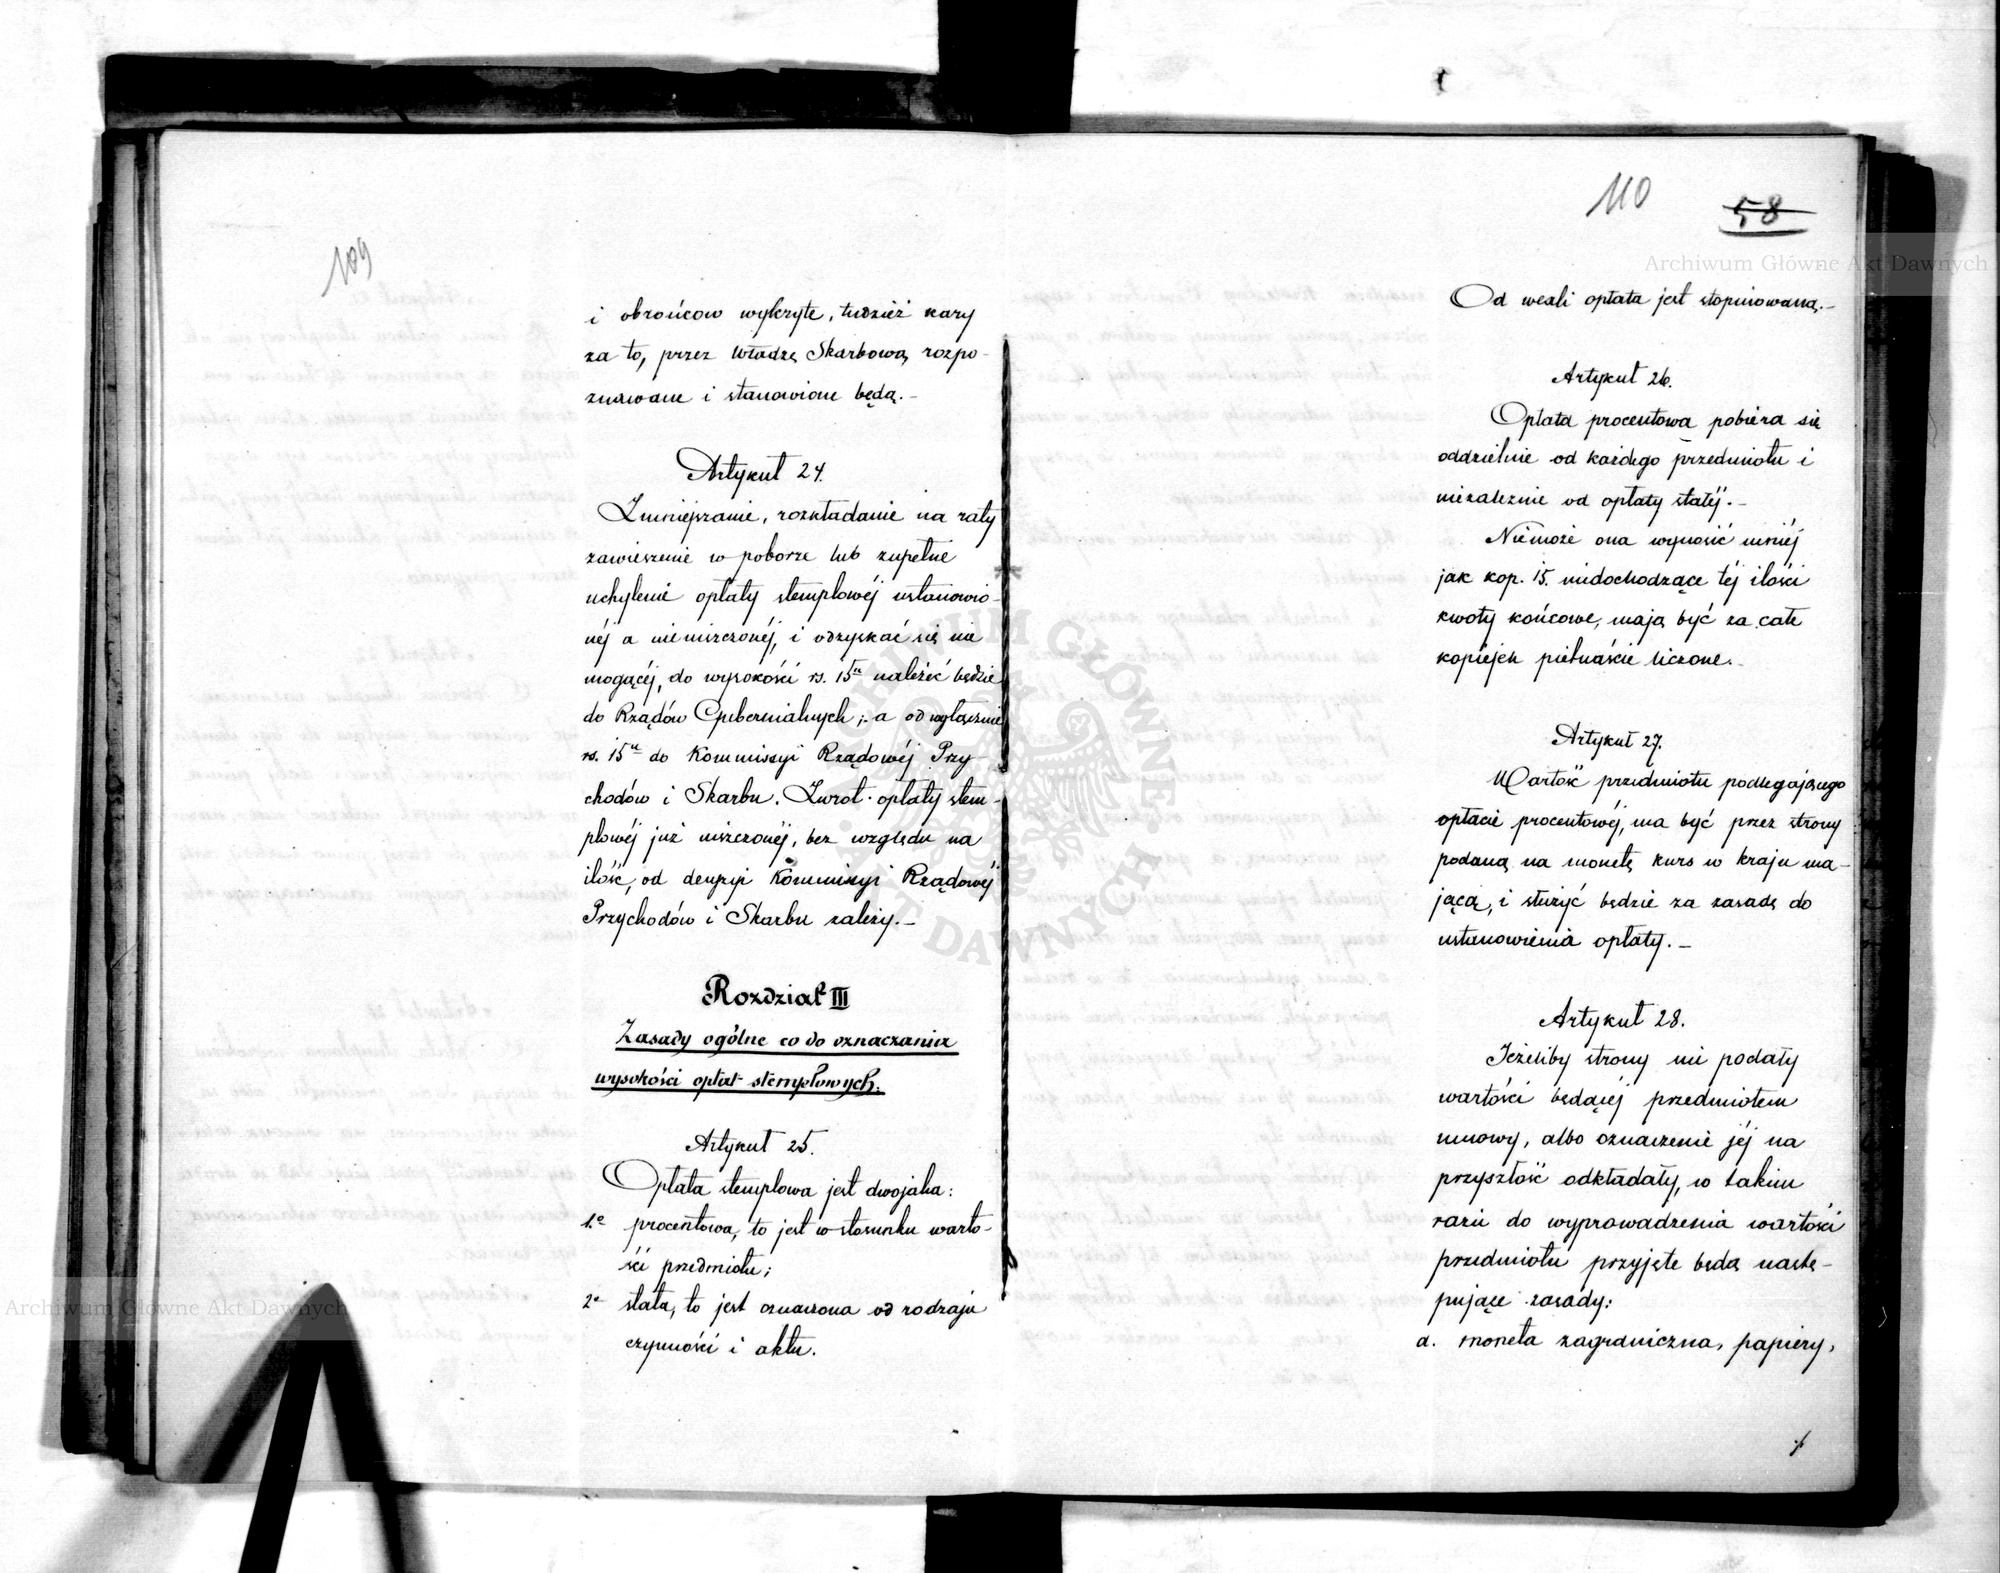 109
i obrońcow wykryte, tudzież kary
za to, przez Władzę Skarbową rozpo-
znawane i stanowione będą.-
Artykuł 24.
Zmniejszanie, rozkładanie na raty
zawieszenie w poborze lub zupełne
uchylenie opłaty stemplowéj ustanowio-
néj a nieuiszczonéj, i odzyskać się nie
mogącéj, do wysokości rs. 15 należéć będzie
do Rządów Gubernialnych; a od wyłącznie
rs. 15 do Kommissyi Rządowéj Przy-
chodów i Skarbu. Zwrot opłaty stem-
plowéj już uiszczonéj, bez względu na
ilość, od decyzyi Kommissyi Rządowéj
Przychodów i Skarbu zależy.-
Rozdział III
Zasady ogólne co do oznaczania
wysokości opłat stemplowych.
Artykuł 25.
Opłata stemplowa jest dwojaka:
1.o procentowa, to jest w stosunku warto-
ści przedmiotu;
2o stała, to jest oznaczona od rodzaju
czynności i aktu.
110
58
Od wexli opłata jest stopniowaną.-
Artykuł 26.
Opłata procentowa pobiéra się
oddzielnie od każdego przedmiotu i
niezależnie od opłaty stałéj.-
Niemoże ona wynosić mniéj
jak kop. 15. niedochodzące téj ilości
kwoty końcowe, mają być za całe
kopiéjek piętnaście liczone.-
Artykuł 27.
Wartość przedmiotu podlegającego
opłacie procentowéj, ma być przez strony
podaną na monetę kurs w kraju ma-
jącą, i służyć będzie za zasadę do
ustanowienia opłaty.-
Artykuł 28.
Jeżeliby strony nie podały
wartości będącéj przedmiotem
umowy, albo oznaczenie jéj na
przyszłość odkładały, w takim
razie do wyprowadzenia wartości
przedmiotu przyjęte będą nastę-
pujące zasady:
a. moneta zagraniczna, papiery,
Archiwum Główne Akt Dawnych
Archiwum Główne Akt Dawnych
ARCHIWUM GŁÓWNE
AKT DAWNYCH